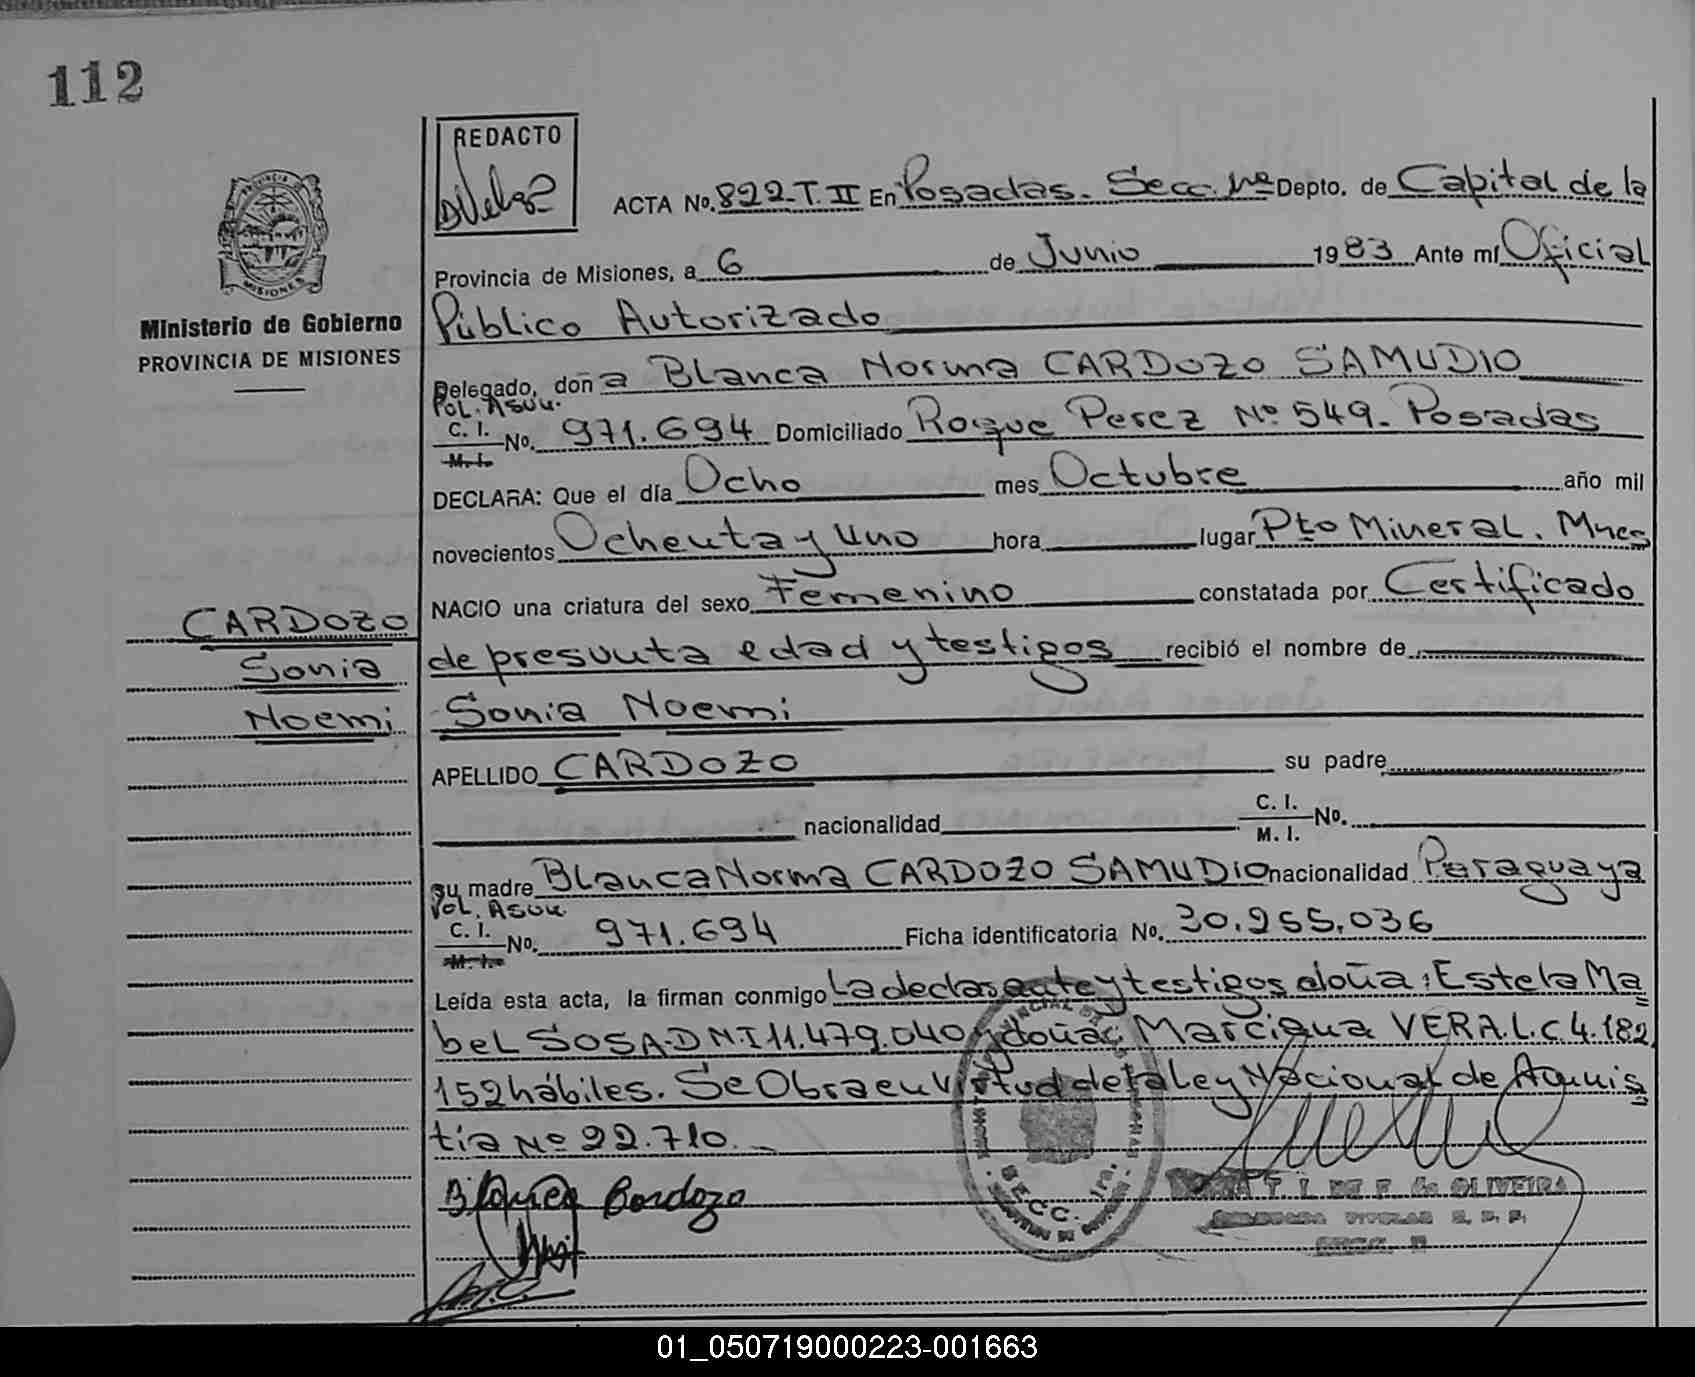 112
REDACTO
DVelaz
ACTA No. 822-T.II En Posadas. Secc. 1ra Depto. de Capital de la
Provincia de Misiones, a 6 de Junio 1983 Ante mí Oficial
MISIONES
Ministerio de Gobierno
PROVINCIA DE MISIONES
Público Autorizado
Delegado, doña Blanca Norma CARDOZO SAMUDIO
POL. ASUN.
C. I. M. I. No. 971.694 Domiciliado Roque Perez Nº 549. Posadas
DECLARA: Que el día Ocho mes Octubre año mil
novecientos Ochenta y Uno hora lugar Pto Mineral. Mnes
NACIO una criatura del sexo Femenino constatada por Certificado
CARDOZO
de presunta edad y testigos recibió el nombre de
Sonia
Noemi
Sonia Noemi
APELLIDO CARDOZO su padre
nacionalidad C. I. M. I. No.
su madre Blanca Norma CARDOZO SAMUDIO nacionalidad Paraguaya
POL. ASUN
C. I. M. I. No. 971.694 Ficha identificatoria No. 30.255.036
Leída esta acta, la firman conmigo La declarante y testigos doña: Estela Ma
bel SOSA.DNI 11.479.040 y doña: Marciana VERA.L.C.4.182
152 hábiles. Se Obra en Virtud de la Ley Nacional de Amnis
tía Nº 22.710.
SECC. 1ra.
Blanca Cardozo
T. I. DE F. de OLIVEIRA
TITULAR
SECC.
01_050719000223-001663